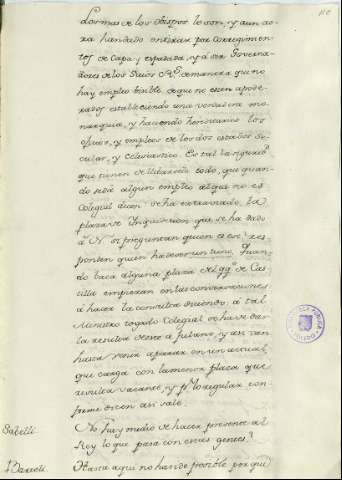 Los mas de los Obispos lo son, y aun ao
ra han dado en tirar por corregimien
tos de Capa y espada, y á ser Governa
dores de los Sitios R.s de manera que no
hay empleo posible de que no esten apode
rados estableciendo una verdadera mo
narquia, y haciendo hereditarios los
oficios, y empleos de los dos estados se
cular, y eclesiastico. Es tal la
que tienen de lo todo, que quan
do se dá algun empleo alguno no es
Colegial dicen se ha extraviado, la
plaza de Inquisicion que se ha dado
á N. Si preguntan quien es ese? res
ponden quien ha de ser un tuno. Quan
do baca alguna plaza de el de Cas
tilla empiezan en las conversaciones
á hacer la consulta diciendo, á tal
Ministro togado Colegial se ha de dar
la resulta de este á fulano, y asi van
hasta venir a parar en un actual
que carga con la menor plaza que
resulta vacante, y p.r lo regular con
forme dicen asi sale.
Sabelli No hay medio de hacer presente al
Rey lo que pasa con estas gentes?
Hasta aqui no ha sido posible por que